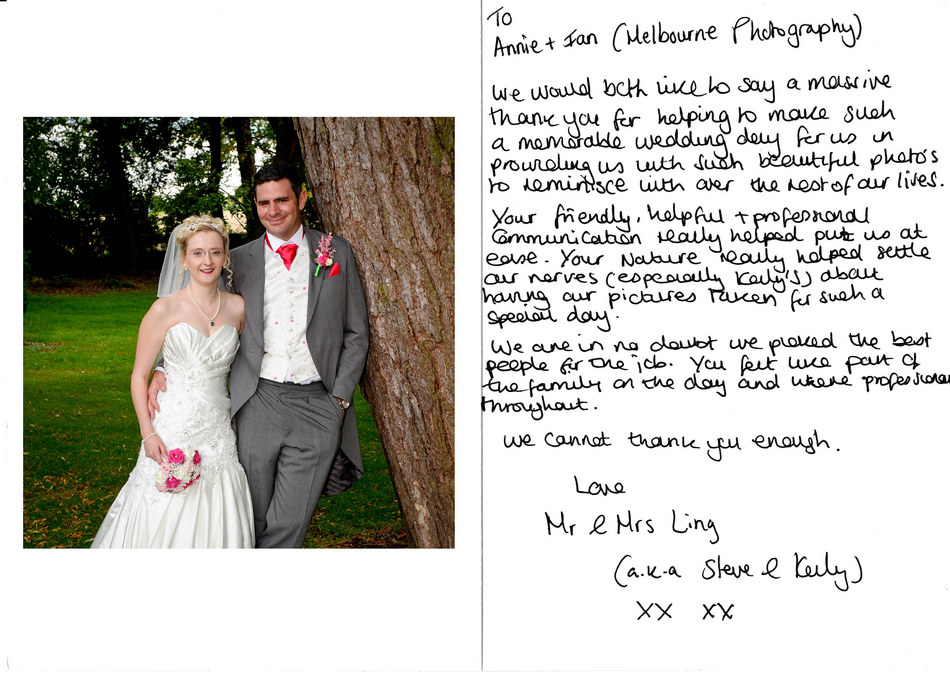 To
Annie + Ian (Melbourne Photography)
We would both like to say a massive
thank you for helping to make such
a memorable wedding day for us in
providing us with such beautiful photo's
to reminisce with over the rest of our lives.
Your friendly, helpful + professional
communication really helped put us at
ease. Your Nature really helped settle
our nerves (especially Keely's) about
having our pictures Taken for such a
special day.
We are in no doubt we picked the best
people for the job. You felt like part of
the family on the day and where professional
throughout.
We cannot thank you enough.
Love
Mr & Mrs Ling
(a.k.a Steve & Keely)
XX XX